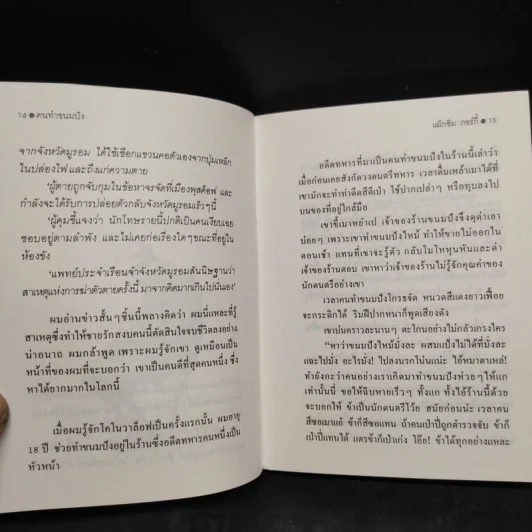 14 ● คนทำขนมปัง
จากจังหวัดมูรอม ได้ใช้เชือกแขวนคอตัวเองจากปุ่มเหล็ก
ในปล่องไฟ และถึงแก่ความตาย
'ผู้ตายถูกจับกุมในข้อหาจรจัดที่เมืองพุตคัอฟ และ
กำลังจะได้รับการปล่อยตัวกลับจังหวัดมูรอมเร็วๆนี้
'ผู้คุมชี้แจงว่า นักโทษรายนี้ปกติเป็นคนเงียบเฉย
ชอบอยู่ตามลำพัง และไม่เคยก่อเรื่องใดๆขณะที่อยู่ใน
ห้องขัง
'แพทย์ประจำเรือนจำจังหวัดมูรอมสันนิษฐานว่า
สาเหตุแห่งการฆ่าตัวตายครั้งนี้ มาจากคิดมากเกินไปนั่นเอง'
ผมอ่านข่าวสั้นๆชิ้นนี้พลางคิดว่า ผมนี่แหละที่รู้
สาเหตุซึ่งทำให้ชายรักสงบคนนี้ตัดสินใจจบชีวิตลงอย่าง
น่าอนาถ ผมกล้าพูด เพราะผมรู้จักเขา ดูเหมือนเป็น
หน้าที่ของผมที่จะบอกว่า เขาเป็นคนดีที่สุดคนหนึ่ง ซึ่ง
หาได้ยากมากในโลกนี้
เมื่อผมรู้จักโคโนวาล็อฟเป็นครั้งแรกนั้น ผมอายุ
18 ปี ช่วยทำขนมปังอยู่ในร้านซึ่งอดีตทหารคนหนึ่งเป็น
หัวหน้า
แม็กซิม กอร์กี้ ● 15
อดีตทหารที่มาเป็นคนทำขนมปังในร้านนี้เล่าว่า
เมื่อก่อนเคยสังกัดวงดนตรีทหาร เวลาดื่มเหล้าเมาได้ที่
เขามักจะทำท่าดีดสีตีเป่า ใช้ปากเปล่าๆ หรือทุบลงไป
บนของที่อยู่ใกล้มือ
เขาขี้เมาหยำเป เจ้าของร้านขนมปังจึงดุด่าเอา
บ่อยๆ เพราะเขาทำขนมปังไหม้ ทำให้ขายไม่ออกใน
ตอนเช้า แทนที่เขาจะรู้ตัว กลับโมโหหุนหันและด่า
เจ้าของร้านตอบ เขาหาว่าเจ้าของร้านไม่รู้จักคุณค่าของ
นักดนตรีอย่างเขา
เวลาคนทำขนมปังโกรธจัด หนวดสีแดงยาวเฟื้อย
จะกระดิกได้ ริมฝีปากหนาก็พูดเสียงดัง
เขาบ่นคราวละนานๆ ตะโกนอย่างไม่กลัวเกรงใคร
"หาว่าขนมปังไหม้งั้นรึ ผสมแป้งไม่ได้ที่มั่งล่ะ
แฉะไปมั่ง อะไรมั่ง! ไปลงนรกไป๊นแน่ะ ไอ้หมาตาเหล่!
ทำยังกะว่าคนอย่างเราเกิดมาทำขนมปังห่วยๆ ให้แก
เท่านั้นนี่ ขอให้ฉิบหายเร็วๆ ทั้งแก ทั้งไอ้ร้านนี้ด้วย
จะบอกให้ ข้าเป็นนักดนตรีโว้ย สมัยก่อนน่ะ เวลาคน
สีซอเมาแอ๋ ข้าก็สีซอแทน ถ้าคนเป่าปี่ถูกตำรวจจับ ข้าก็
เป่าปี่แทนได้ แตรข้าก็เป่าเก่ง โอ๊ย! ข้าได้ทุกอย่างแหละ